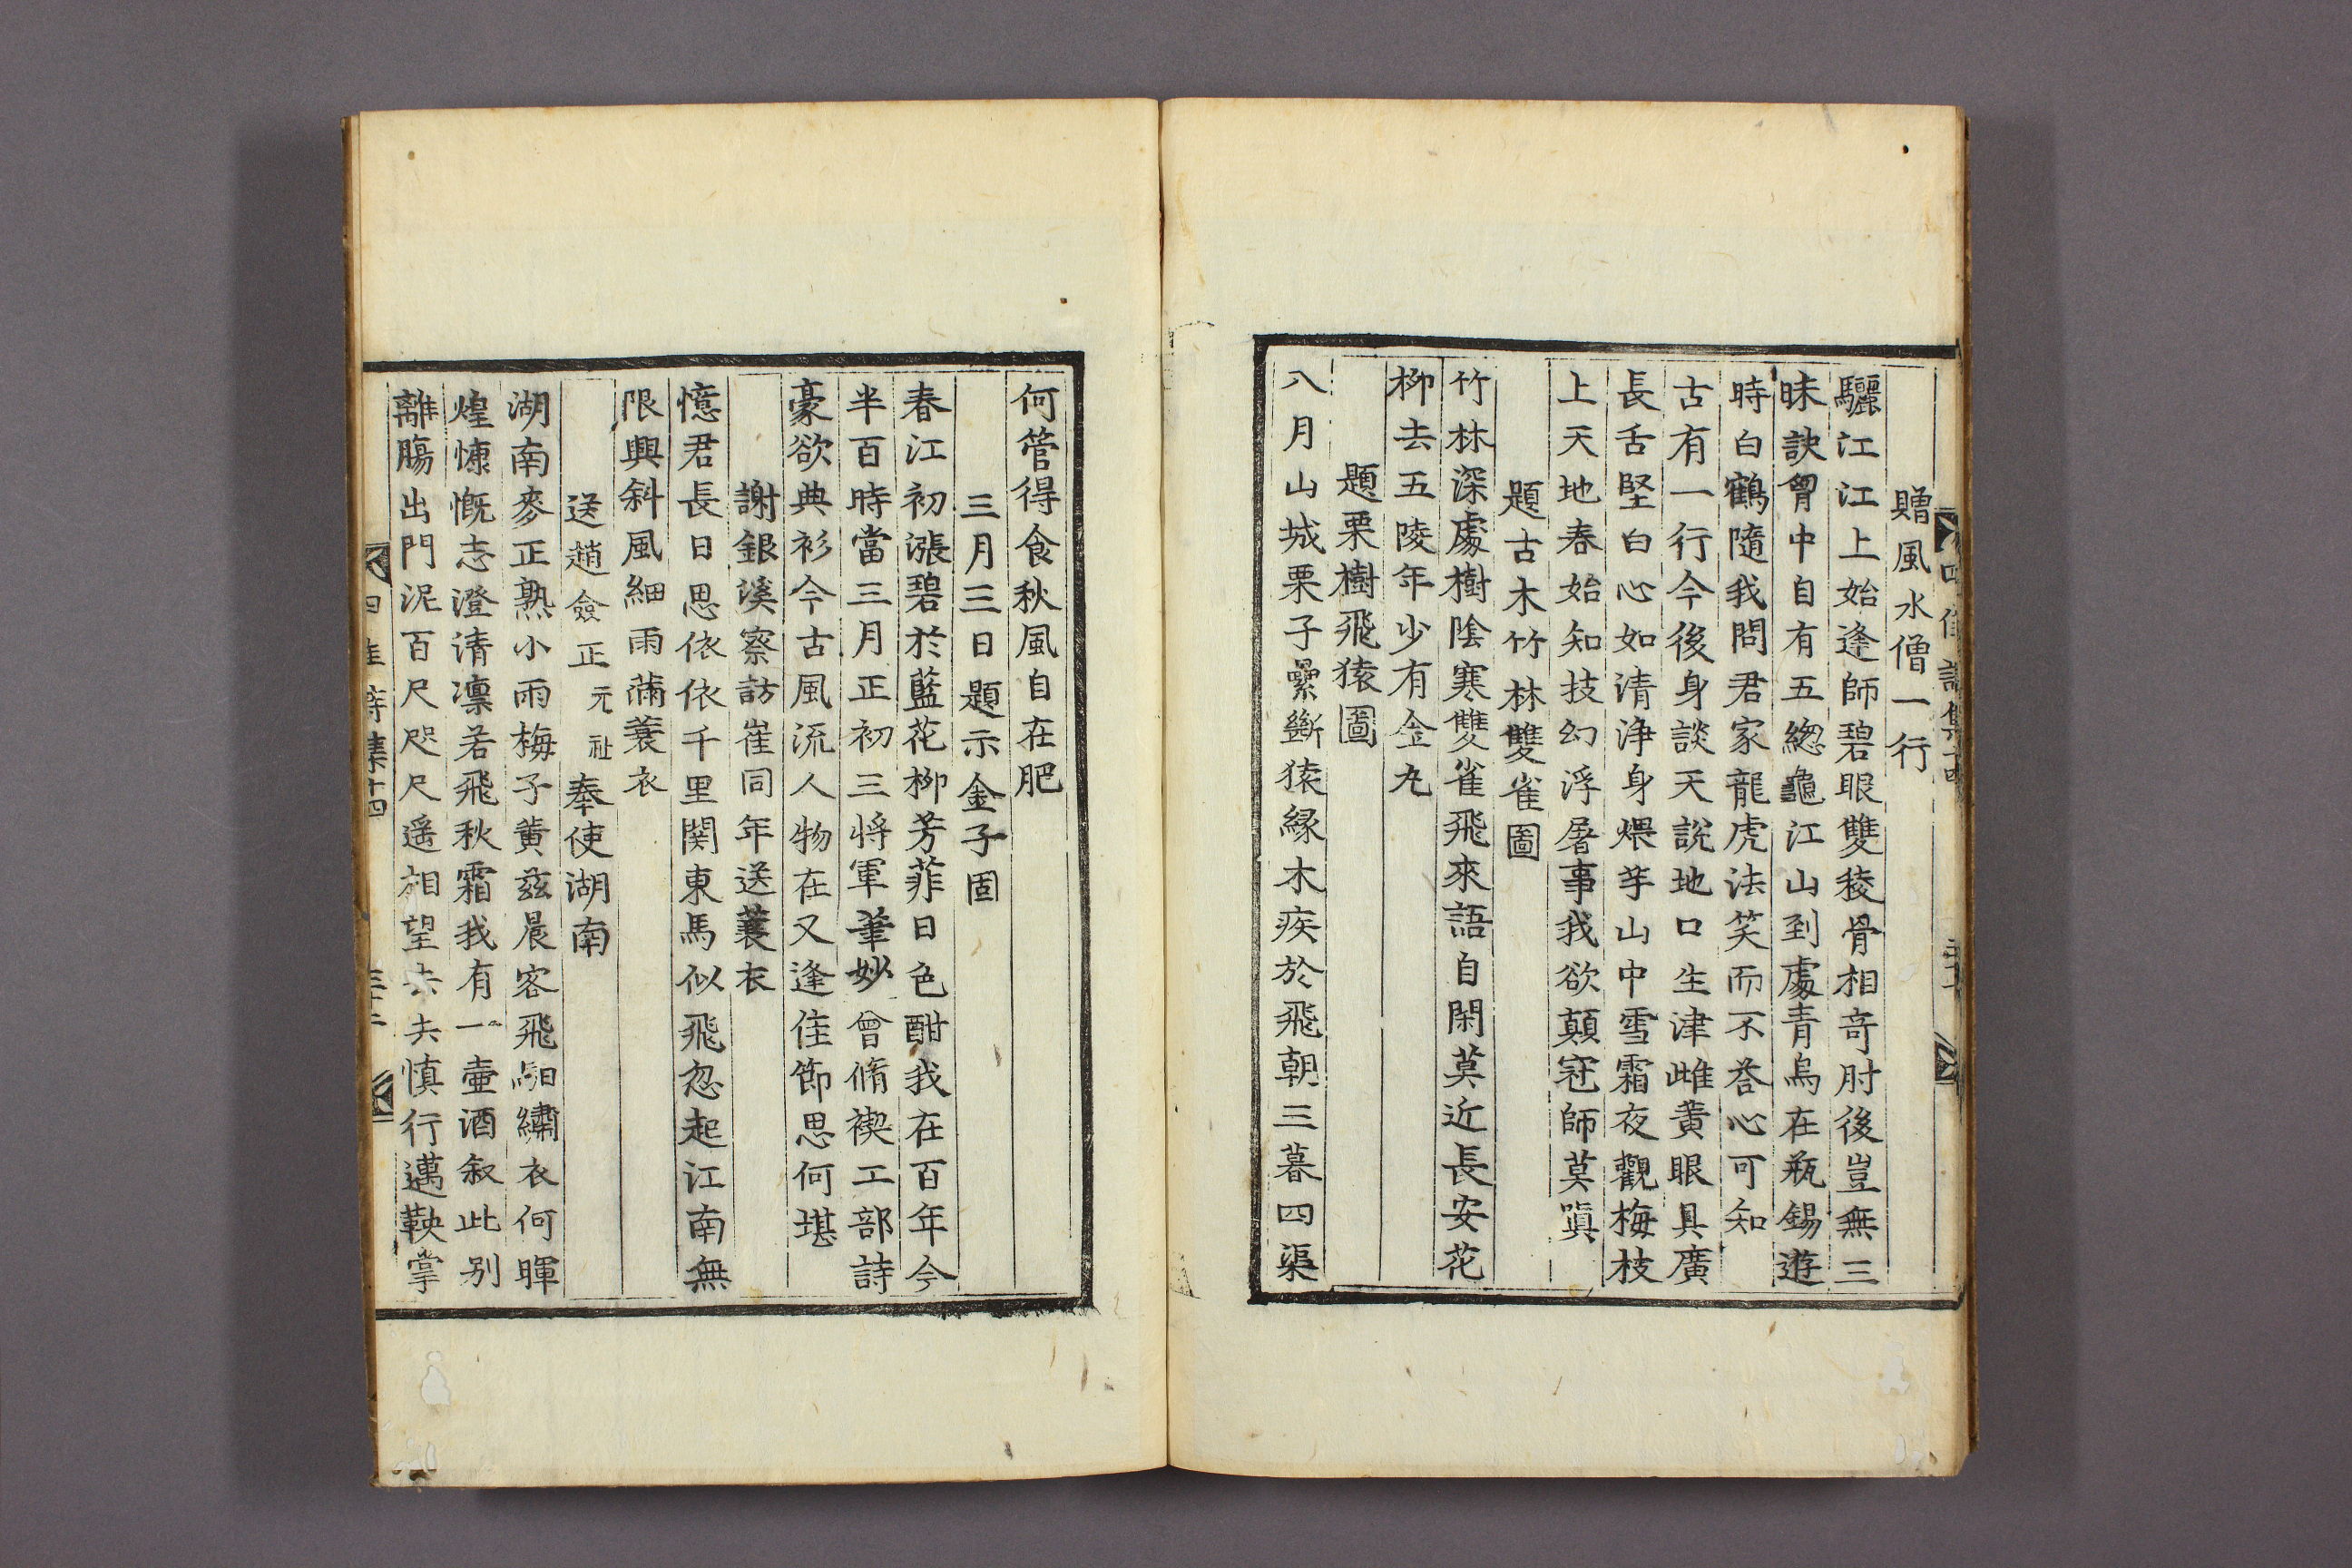 贈風水僧一行
驪江江上始逢師碧眼雙稜骨相奇肘後豈無三
昧訣胷中自有五緫龜江山到處青烏在瓶錫遊
時白鶴隨我問君家龍虎法笑而不荅心可知
古有一行今後身談天說地口生津雌黃眼具廣
長舌堅白心如清淨身煨芋山中雪霜夜觀梅枝
上天地春始知技幻浮屠事我欲顛冠師莫嗔
題古木竹林雙雀圖
竹林深處樹陰寒雙雀飛來語自閑莫近長安花
柳去五陵年少有金丸
題栗樹飛猿圖
八月山城栗子纍斷猿緣木疾於飛朝三暮四渠
何管得食秋風自在肥
三月三日題示金子固
春江初漲碧於藍花柳芳菲日色酣我在百年今
半百時當三月正初三將軍筆妙曾脩禊工部詩
豪欲典衫今古風流人物在又逢佳節思何堪
謝銀溪察訪崔同年送蓑衣
憶君長日思依依千里関東馬似飛忽起江南無
限興斜風細雨滿蓑衣
送趙僉正元祉奉使湖南
湖南麥正熟小雨梅子黃茲晨客飛馹繡衣何暉
煌慷慨志澄清凛若飛秋霜我有一壷酒叙此别
離膓出門泥百尺咫尺遥相望去去慎行邁鞅掌
四佳詩集十四